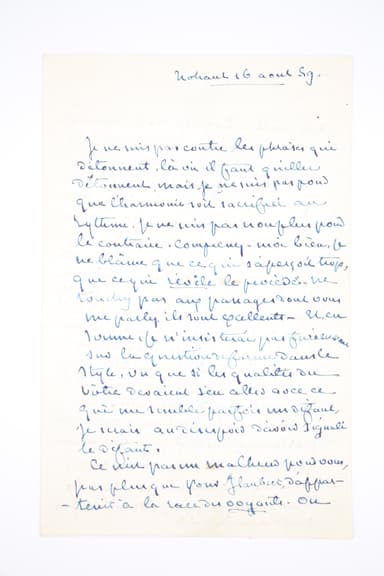 Nohant 16 aout 59.
Je ne suis pas contre les phrases qui
détonnent, là où il faut qu'elles
détonnent, mais je ne suis pas pour
que l'harmonie soit sacrifiée au
rythme. Je ne suis pas non plus pour
le contraire. Comprenez-moi bien, je
ne blâme que ce qui s'aperçoit trop,
que ce qui révèle le procédé. Ne
touchez pas aux passages dont vous
me parlez, ils sont excellents — Et, en
somme, je n'insisterai pas
sur la question réforme dans le
style, vu que si les qualités du
vôtre devaient s'en aller avec ce
qui me semble parfois un défaut,
je serais au désespoir d'avoir signalé
le défaut.
Ce n'est pas un malheur pour vous,
pas plus que pour Flaubert, d'appar-
-tenir à la race des voyants. On